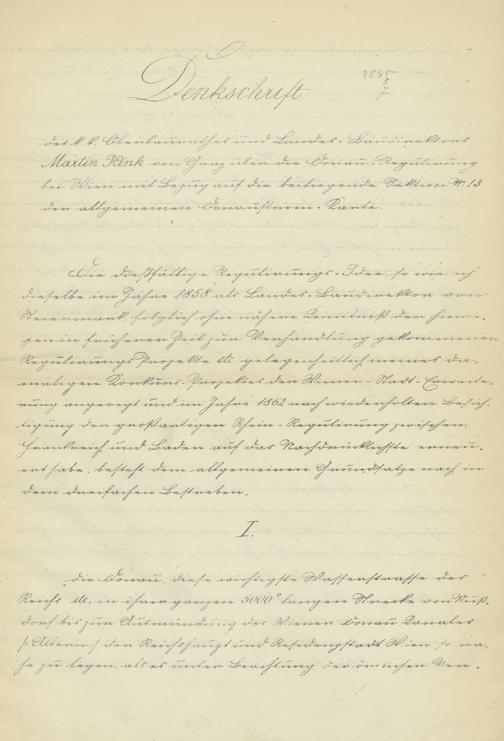 Denkschrift
3845
8
7
des k. k. Oberbaurathes und Landes-Baudirektors
Martin Kink von Graz über die Donau-Regulirung
bei Wien mit Bezug auf die beiliegende Sektion No 13
der allgemeinen Donaustrom-Karte
Die dießfällige Regulirungs-Idee, so wie ich
dieselbe im Jahre 1858 als Landes-Baudirektor von
Steiermark, folglich ohne nähere Kenntniß der hier
gen in früherer Zeit zur Verhandlung gekommenen
Regulirungs-Projekte &c. gelegenheitlich meines da-
maligen Konkurs-Projektes der Wiener-Stadt-Erweite-
rung angeregt und im Jahre 1862 nach wiederholten Besich-
tigung der großartigen Rhein-Regulirung zwischen
Frankreich und Baden auf das Nachdrücklichste erneu-
ert habe, besteht dem allgemeinen Grundsatze nach in
dem dreifachen Bestreben.
I.
die Donau, diese wichtigste Wasserstrasse des
Reichs &c. in ihrer ganzen 5000° langen Strecke von Nuß-
dorf bis zur Ausmündung des Wiener Donau Canales
/: Albern :/ der Reichshaupt und Residenzstadt Wien so na-
he zu legen, als es unter Beachtung der örtlichen Ver-